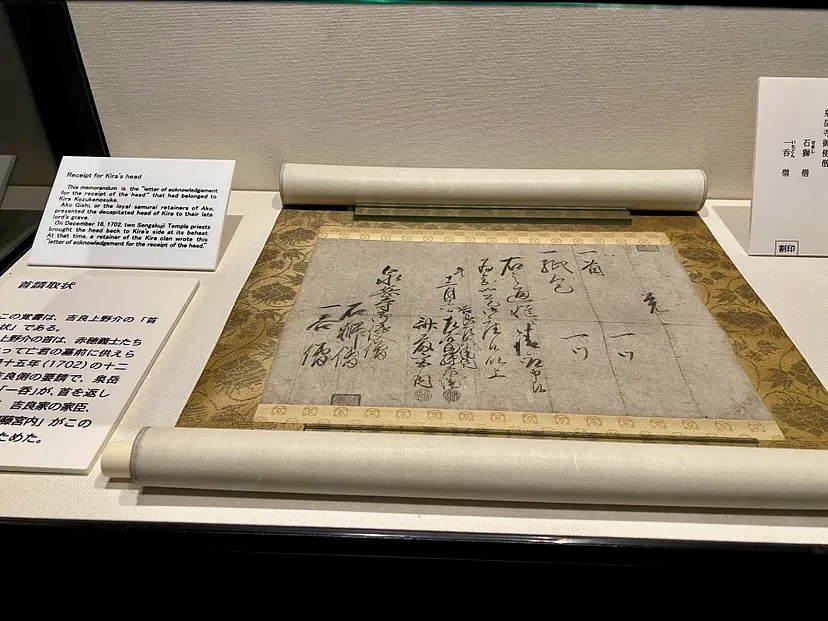 Receipt for Kira's head
This memorandum is the "letter of acknowledgement
for the receipt of the head" that had belonged to
Kira Kozukenosuke.
Ako Gishi, or the loyal samurai retainers of Ako,
presented the decapitated head of Kira to their late
lord's grave.
On December 16, 1702, two Sengakuji Temple priests
brought the head back to Kira's side at its behest.
At that time, a retainer of the Kira clan wrote this
"letter of acknowledgement for the receipt of the head."
首請取状
この覚書は、吉良上野介の「首
状」である。
上野介の首は、赤穂義士たち
って亡君の墓前に供えら
十五年(1702)の十二
吉良側の要請で、泉岳
「一呑」が、首を返し
、吉良家の家臣、
藤宮内」がこの
ためた。
覚
一首 一ツ
一紙包 一ツ
泉岳寺御使僧
石獅僧
一呑僧
御使僧
石獅 僧
せきし
一呑 僧
いちどん
割印